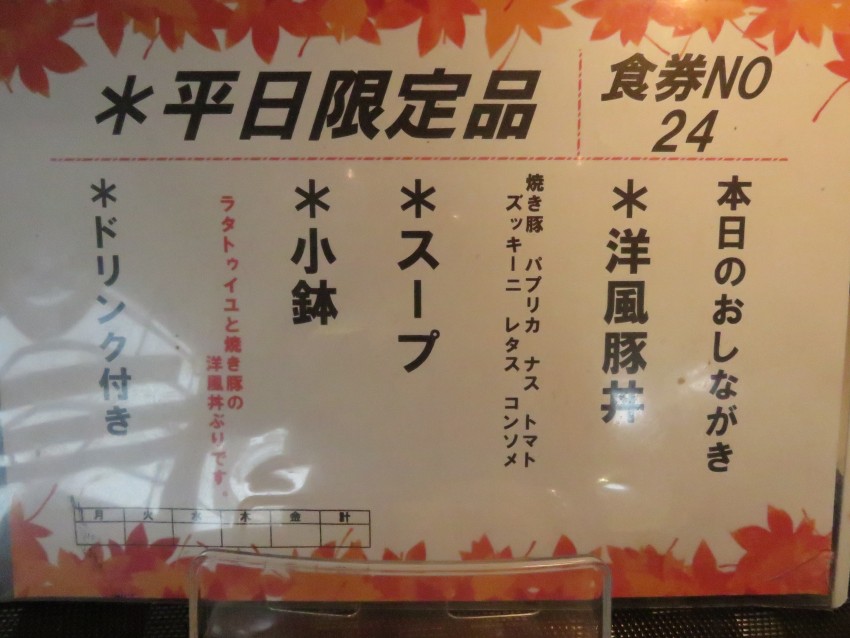 ＊平日限定品
食券NO
24
本日のおしながき
＊洋風豚丼
焼き豚 パプリカ ナス トマト
ズッキーニ レタス コンソメ
＊スープ
＊小鉢
ラタトゥイユと焼き豚の
洋風丼ぶりです。
＊ドリンク付き
月 火 水 木 金 計